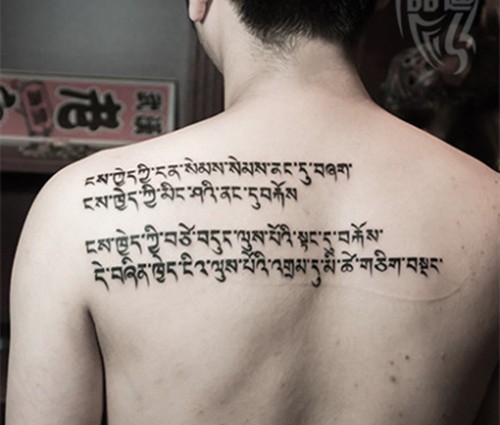 ངས་ཁྱེད་ཀྱི་དན་སེམས་སེམས་ནང་དུ་བཞག་
ངས་ཁྱེད་ཀྱི་མིང་ཤའི་ནང་དུ་བརྐོས
ངས་ཁྱེད་ཀྱི་བཙོ་བདུར་ལུས་པོའི་སྟང་དུ་བརྐོས་
དེ་བཞིན་ཁྱེད་ངའི་ལུས་པོའི་འགྲམ་དུ་མི་ཚེ་གཅིག་བསྡང་